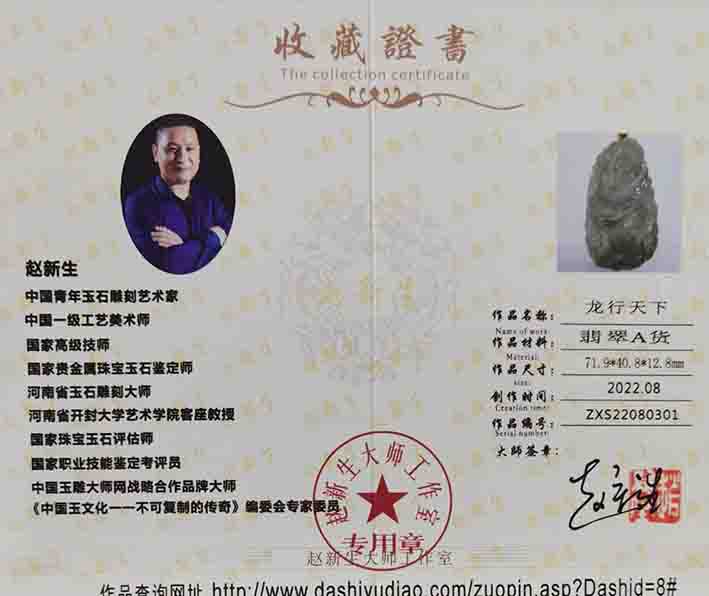 收藏證書
The collection certificate
赵新生
中国青年玉石雕刻艺术家
中国一级工艺美术师
国家高级技师
国家贵金属珠宝玉石鉴定师
河南省玉石雕刻大师
河南省开封大学艺术学院客座教授
国家珠宝玉石评估师
国家职业技能鉴定考评员
中国玉雕大师网战略合作品牌大师
《中国玉文化一一不可复制的传奇》编委会专家委员
作品名称： 龙行天下
Name of work:
作品材料： 翡翠A货
Material:
作品尺寸： 71.9*40.8*12.8mm
size:
创作时间： 2022.08
Creation time:
作品编号： ZXS22080301
Serial number:
大师签章：
赵新生大师工作室
专用章
赵新生大师工作室
作品查询网址 http://www.dashiyudiao.com/zuopin.asp?Dashid=8#